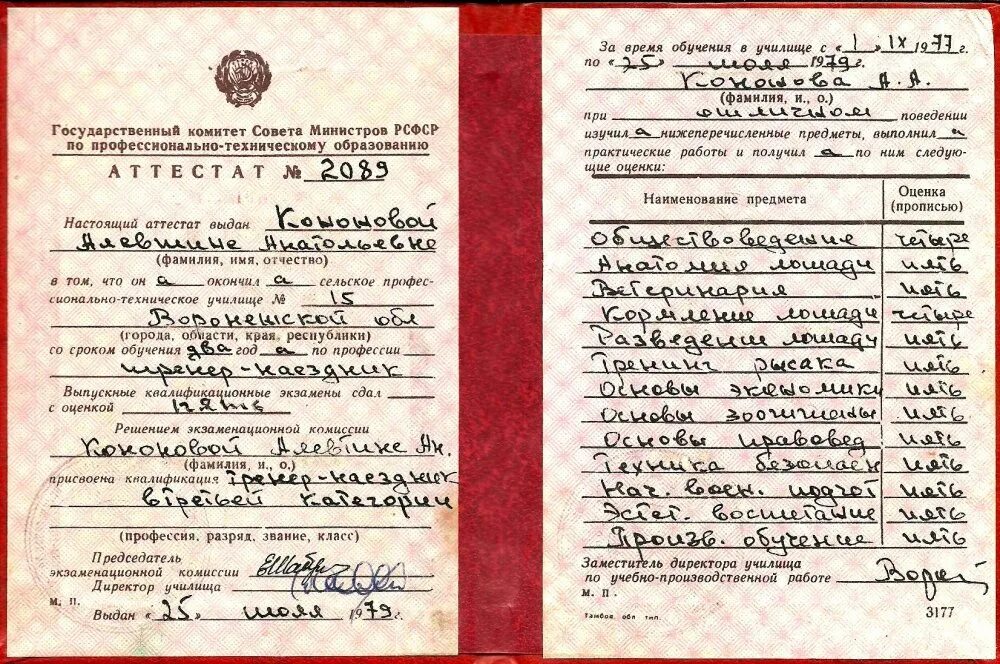 Государственный комитет Совета Министров РСФСР
по профессионально-техническому образованию
АТТЕСТАТ № 2089
Настоящий аттестат выдан Кононовой
Алевтине Анатольевне
(фамилия, имя, отчество)
в том, что он а окончил а сельское профес-
сионально-техническое училище № 15
Воронежской обл
(города, области, края, республики)
со сроком обучения два год а по профессии
тренер-наездник
Выпускные квалификационные экзамены сдал
с оценкой пять
Решением экзаменационной комиссии
Кононовой Алевтине Ан.
(фамилия, и., о.)
присвоена квалификация тренер-наездник
втретьей категории
(профессия, разряд, звание, класс)
Председатель
экзаменационной комиссии
Директор училища
М. П.
Выдан «25» июля 1979г.
За время обучения в училище с «1» IX 1977г.
по «25» июля 1979г.
Кононова А. А.
(фамилия, и., о.)
при отличном поведении
изучил а нижеперечисленные предметы, выполнил а
практические работы и получил а по ним следую-
щие оценки:
Наименование предмета Оценка (прописью)
Обществоведение четыре
Анатомия лошади пять
Ветеринария пять
Кормление лошади четыре
Разведение лошади пять
Тренинг рысака пять
Основы экономики пять
Основы зоогигиены пять
Основы правовед пять
Техника безопасн пять
Нач. воен. подгот пять
Эстет. воспитание пять
Произв. обучение пять
Заместитель директора училища
по учебно-производственной работе
М. П.
Тамбов. обл тип. 3177